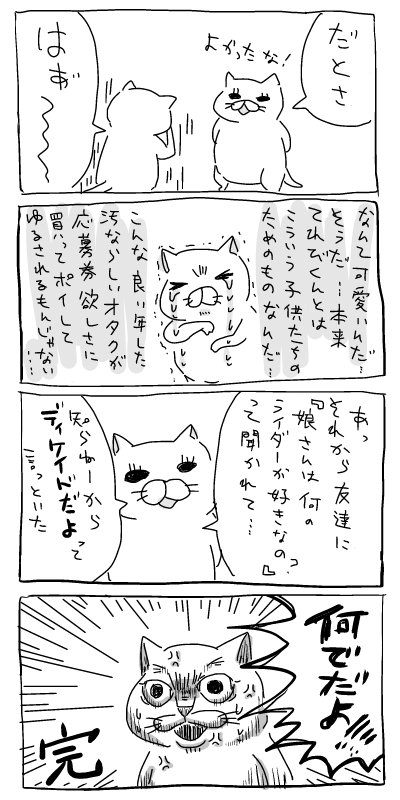 だとさ
よかったな!
はぁ゛〜〜
なんて可愛いんだ…
そうだ…本来
てれびくんとは
こういう子供たちの
ためのものなんだ…
こんな良い年した
汚ならしいオタクが
応募券欲しさに
買ってポイして
ゆるされるもんじゃない…
あっ
それから友達に
『娘さんは何の
ライダーが好きなの?』
って聞かれて…
知らねーから
ディケイドだよって
言っといた
何でだよ!!!
完